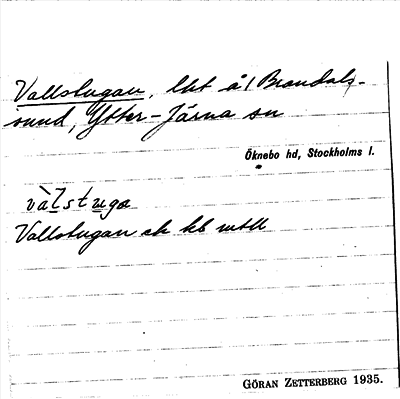 Vallstugan, lht å1 Brandals-
sund, Ytter-Järna sn
Öknebo hd, Stockholms l.
vàlstuga
Vallstugan ek kb mtll
GÖRAN ZETTERBERG 1935.